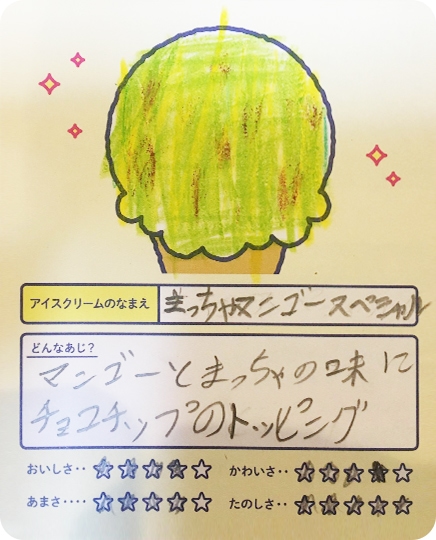 アイスクリームのなまえ まっちゃマンゴースペシャル
どんなあじ?
マンゴーとまっちゃの味に
チョコチップのトッピング
おいしさ・・ ☆☆☆☆☆ かわいさ・・ ☆☆☆☆☆
あまさ・・・・ ☆☆☆☆☆ たのしさ・・ ☆☆☆☆☆